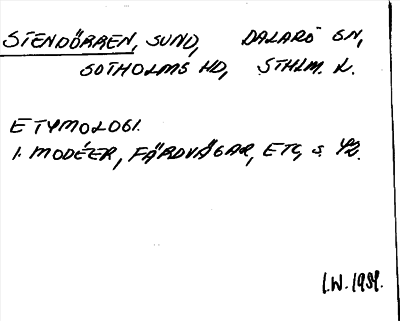 STENDÖRREN, SUND, DALARÖ SN,
SOTHOLMS HD, STHLM. L.
ETYMOLOGI.
1. MODÉER, FÄRDVÄGAR, ETC, S. 42.
I.W. 1984.